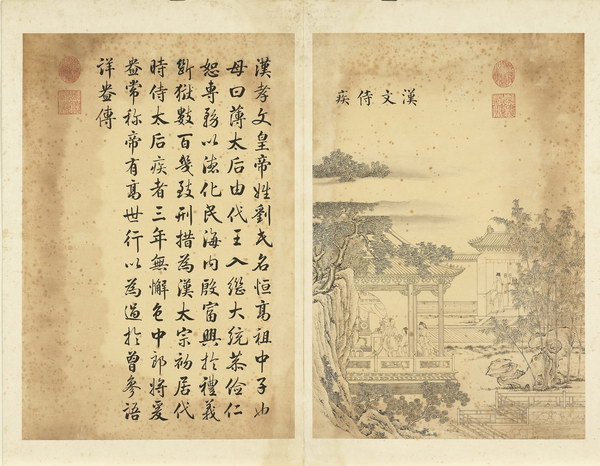 漢文侍疾
漢孝文皇帝姓劉氏名恒高祖中子也
母曰薄太后由代王入繼大統恭儉仁
恕專務以德化民海内殷富興於禮義
斷獄數百幾致刑措為漢太宗初居代
時侍太后疾者三年無懈色中郎將爰
盎常称帝有高世行以為過於曾參語
詳盎傳